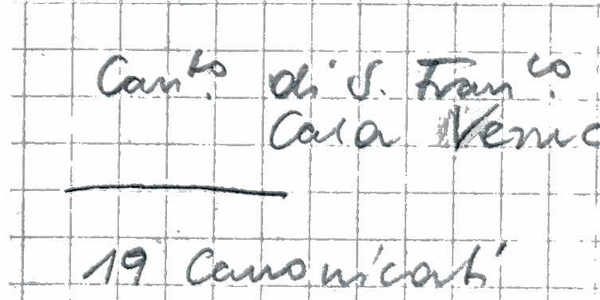 Can.to di S. Fran.co
Casa
19 Canonicati